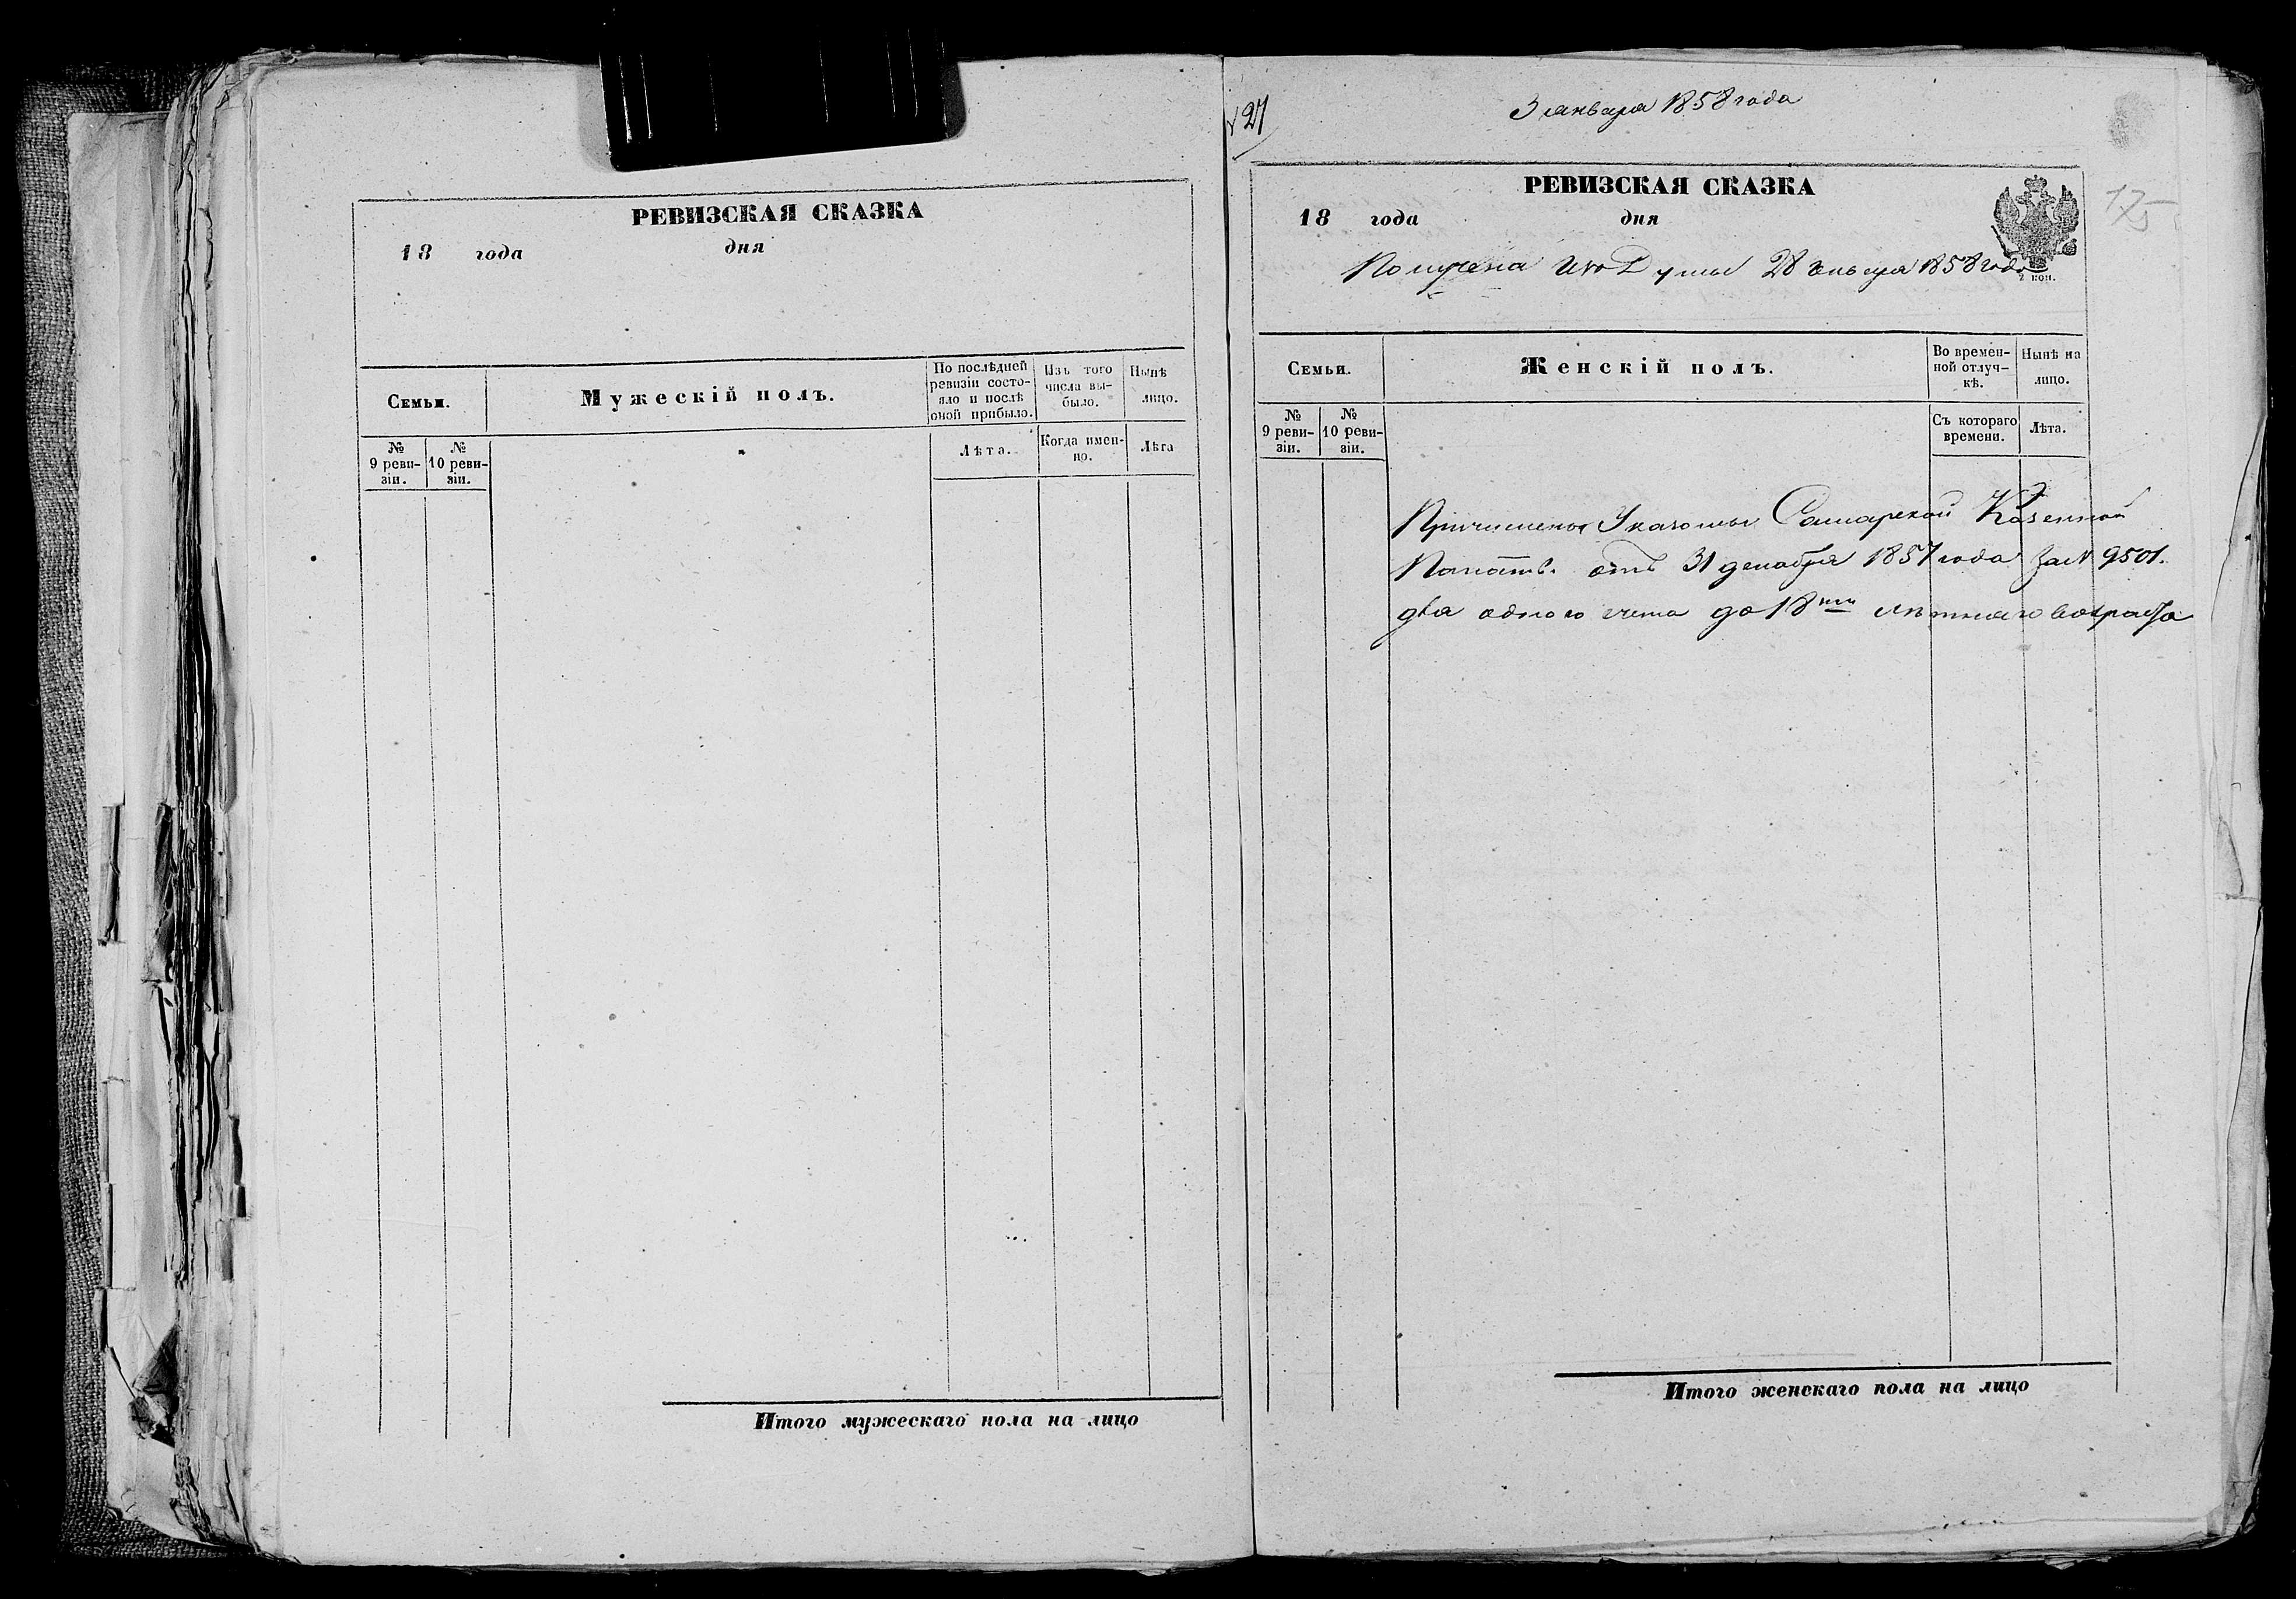 РЕВИЗСКАЯ СКАЗКА
18 года дня
Семьи.
Мужескій полъ.
По послѣдней ревизіи состояло и послѣ оной прибыло.
Изъ того числа выбыло.
Нынѣ лицо.
№ 9 ревизіи.
№ 10 ревизіи.
Лѣта.
Когда именно.
Лѣта
Итого мужескаго пола на лицо
27
3 января 1858 года
РЕВИЗСКАЯ СКАЗКА
175
18 года дня
Получена Думы 28 января 1858 года
2 коп.
Семьи.
Женскій полъ.
Во временной отлучкѣ.
Нынѣ на лицо.
№ 9 ревизіи.
№ 10 ревизіи.
Съ котораго времени.
Лѣта.
Причислены Указомъ Самарской Казенной
Палаты отъ 31 декабря 1857 года за № 9501.
для одного счета до 18ти лѣтняго возраста
Итого женскаго пола на лицо